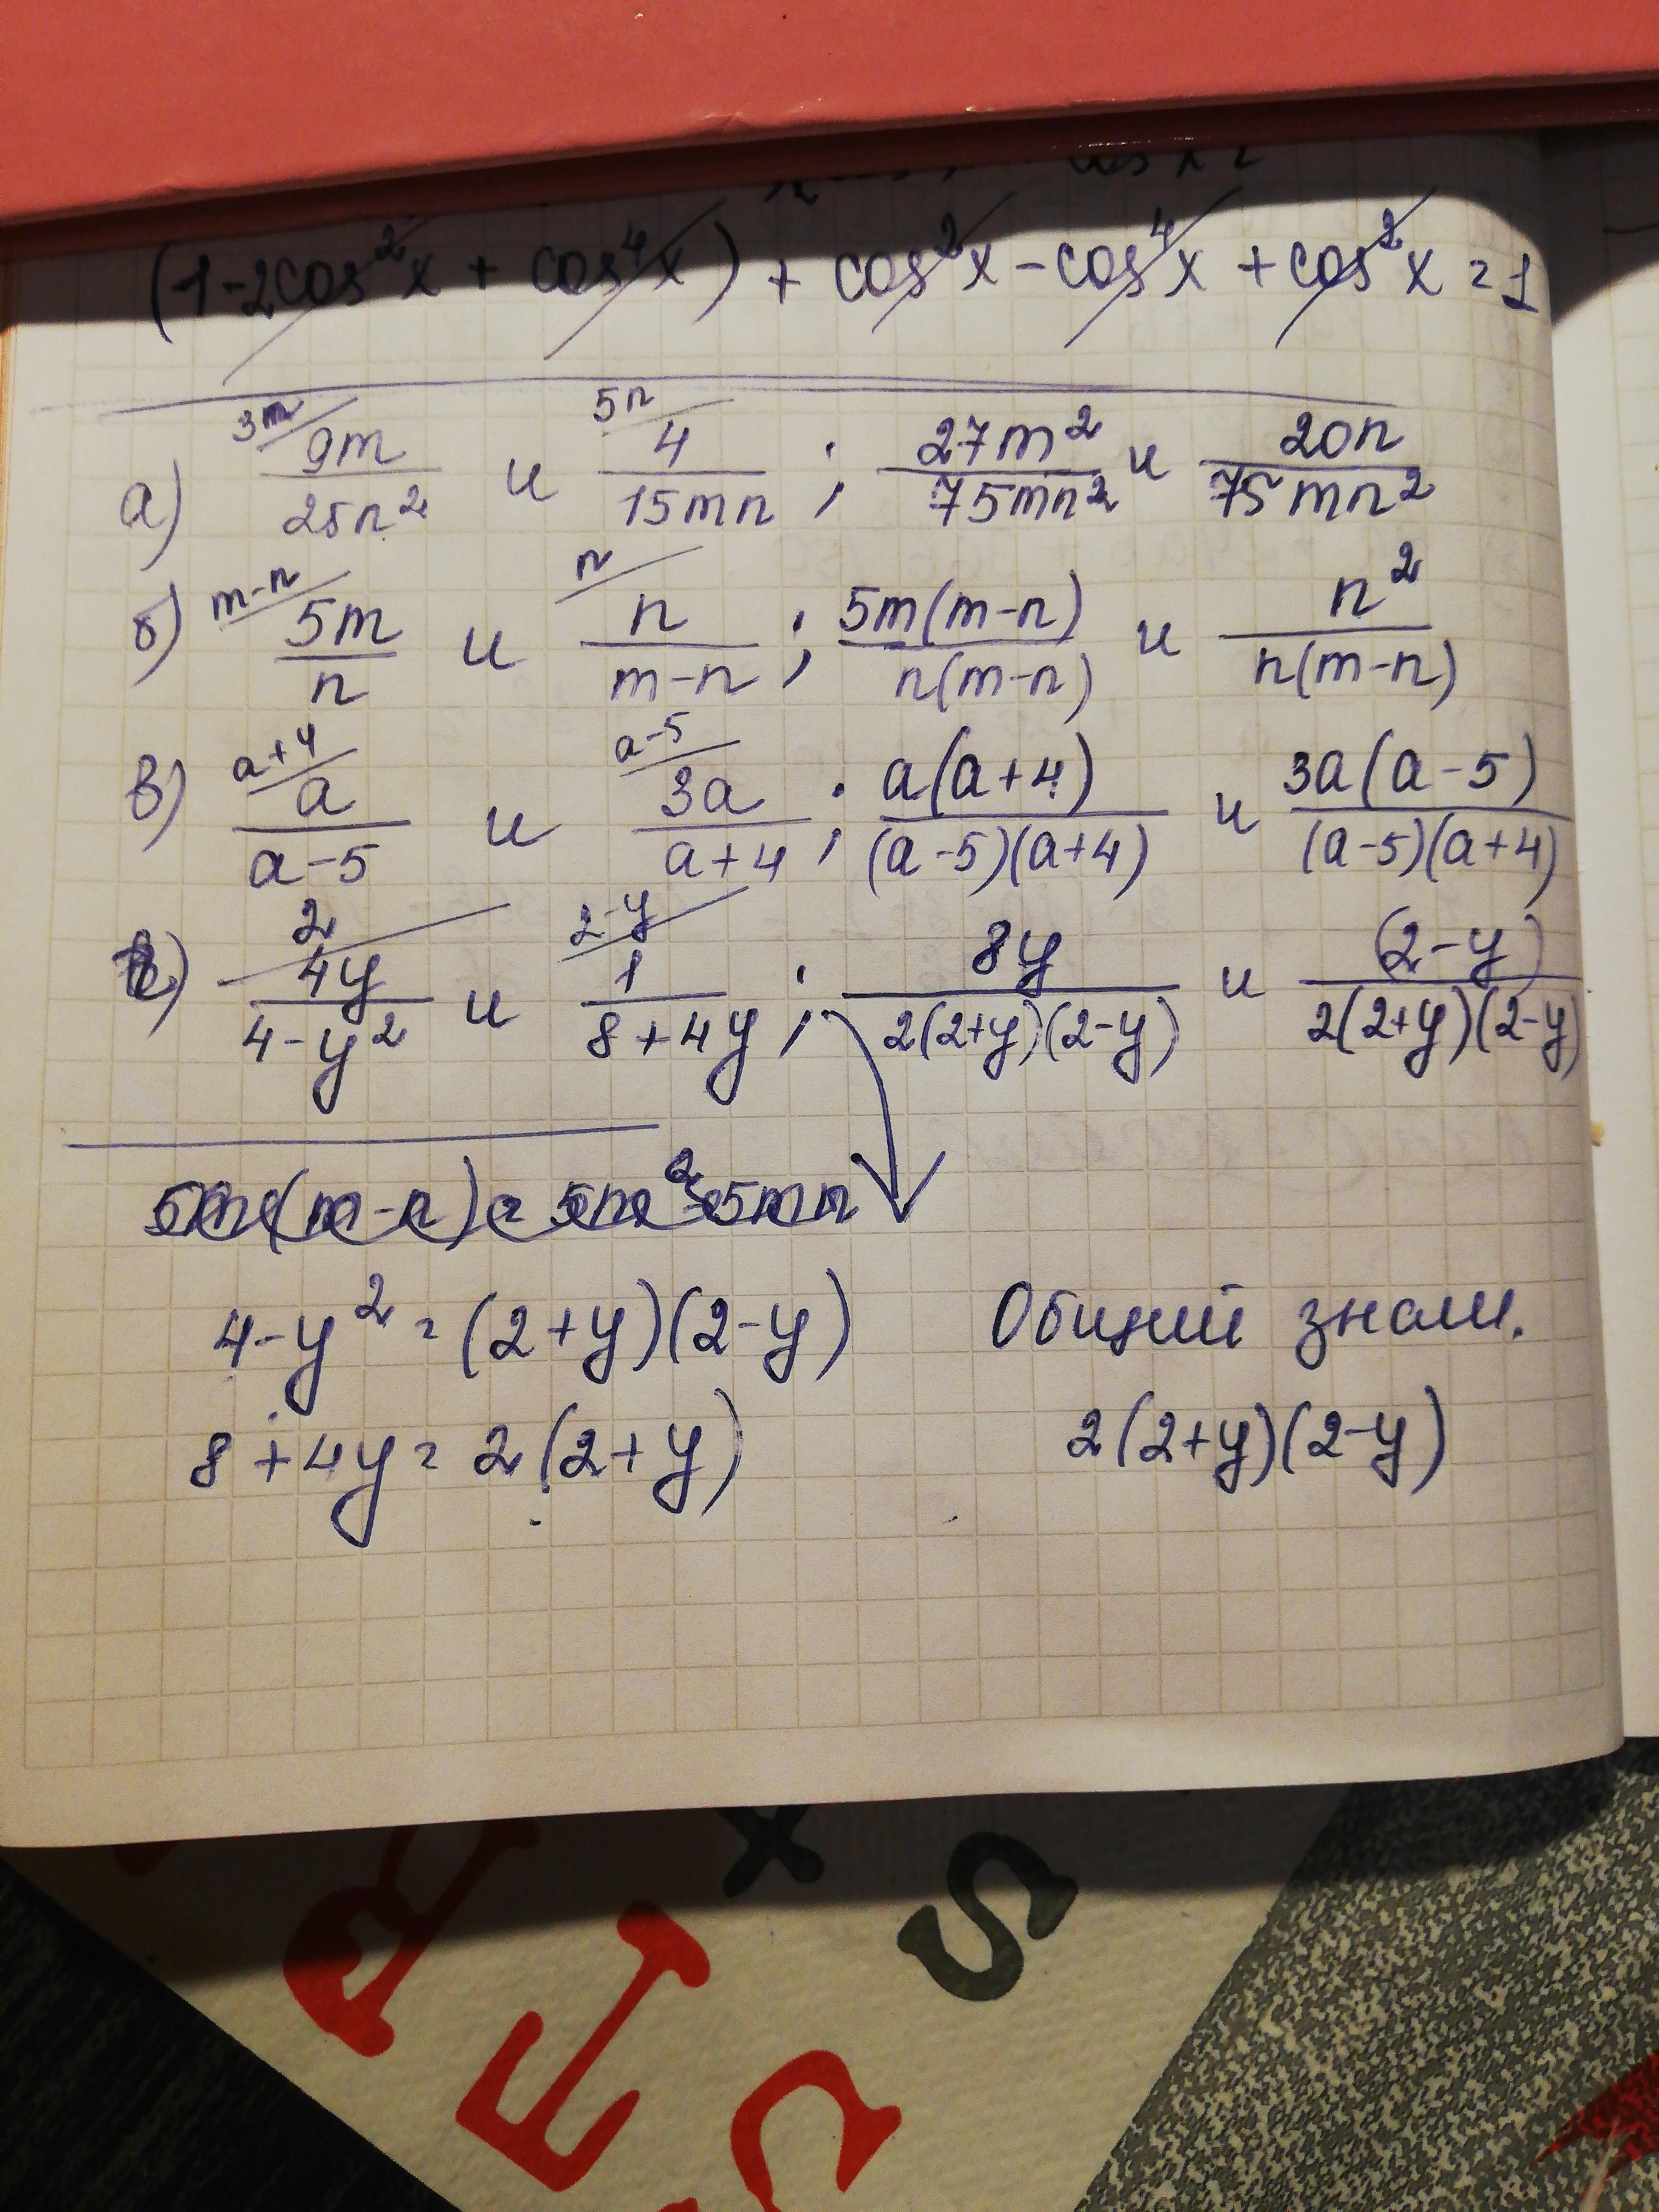 (1-2cos²x + cos⁴x) + cos²x - cos⁴x + cos²x = 1
а) 3m/ 9m/25n² и 5n/ 4/15mn ; 27m²/75mn² и 20n/75mn²
б) m-n/ 5m/n и n/ n/m-n ; 5m(m-n)/n(m-n) и n²/n(m-n)
в) a+4/ a/a-5 и a-5/ 3a/a+4 ; a(a+4)/(a-5)(a+4) и 3a(a-5)/(a-5)(a+4)
2/ 4y/4-y² и 2-y/ 1/8+4y ; 8y/2(2+y)(2-y) и (2-y)/2(2+y)(2-y)
5m(m-n) = 5m²-5mn
4-y² = (2+y)(2-y) Общий знам.
8+4y = 2(2+y) 2(2+y)(2-y)